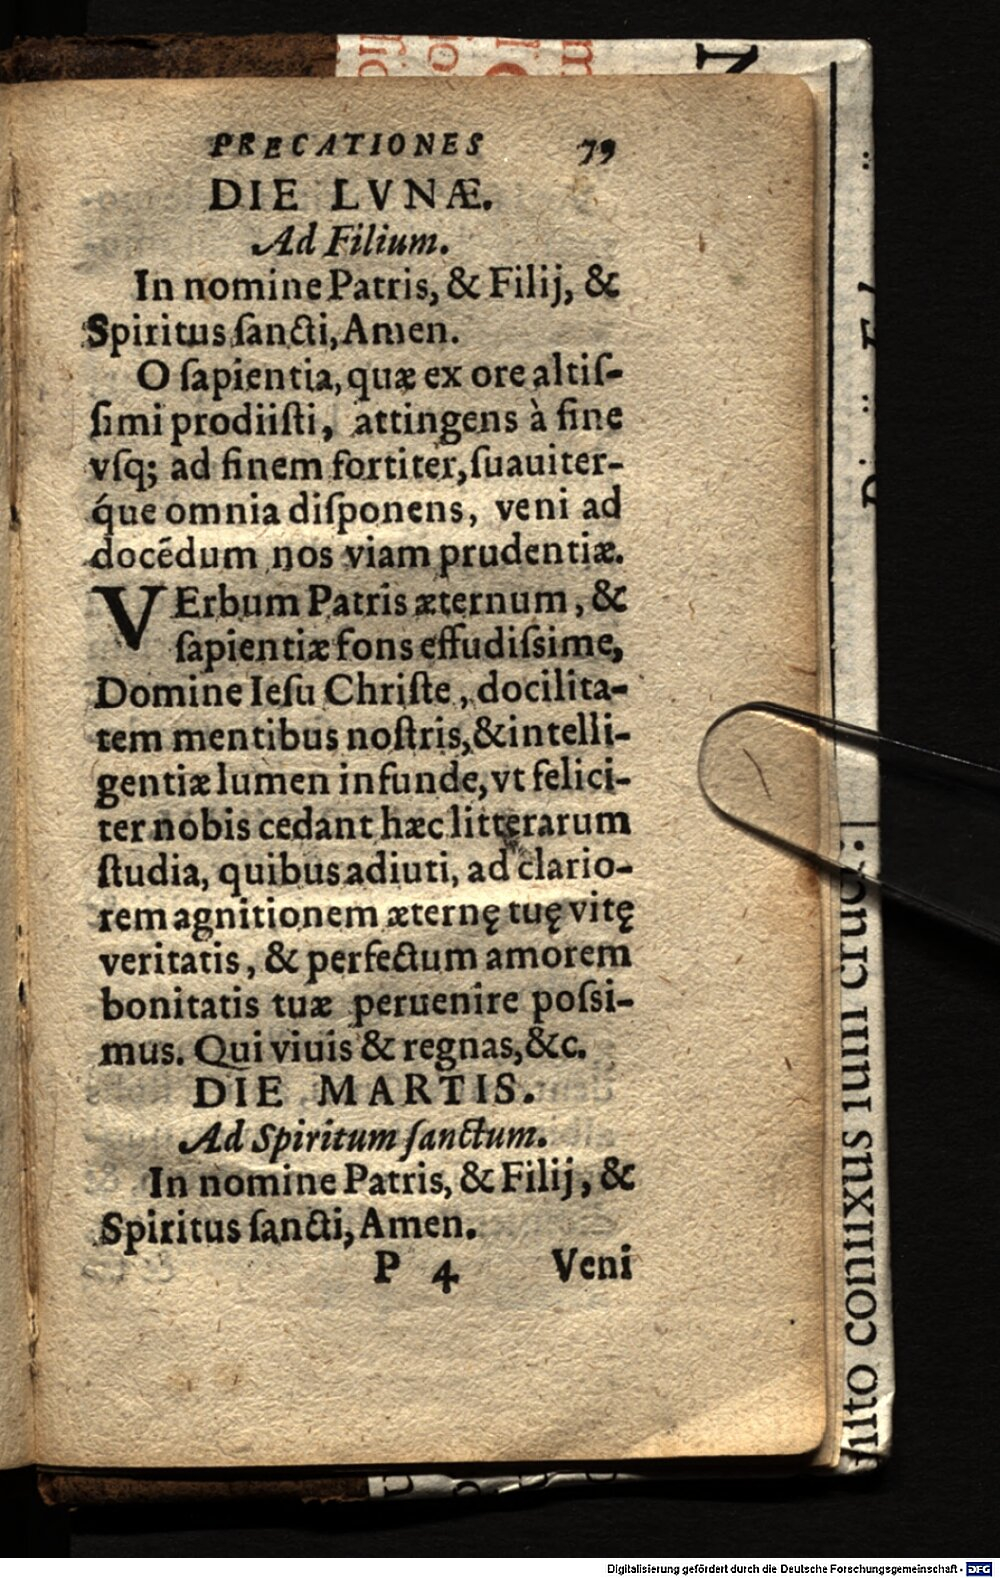 PRECATIONES 79
DIE LVNÆ.
Ad Filium.
In nomine Patris, & Filij, &
Spiritus ſancti, Amen.
O ſapientia, quæ ex ore altiſ-
ſimi prodiiſti, attingens à fine
vſq; ad finem fortiter, ſuauiter-
q́ue omnia diſponens, veni ad
docẽdum nos viam prudentiæ.
VErbum Patris æternum, &
ſapientiæ fons effudiſsime,
Domine Ieſu Chriſte, docilita-
tem mentibus noſtris, & intelli-
gentiæ lumen infunde, vt felici-
ter nobis cedant hæc litterarum
ſtudia, quibus adiuti, ad clario-
rem agnitionem æternę tuę vitę
veritatis, & perfectum amorem
bonitatis tuæ peruenire poſsi-
mus. Qui viuis & regnas, &c.
DIE MARTIS.
Ad Spiritum ſanctum.
In nomine Patris, & Filij, &
Spiritus ſancti, Amen.
P 4 Veni
Digitalisierung gefördert durch die Deutsche Forschungsgemeinschaft - DFG